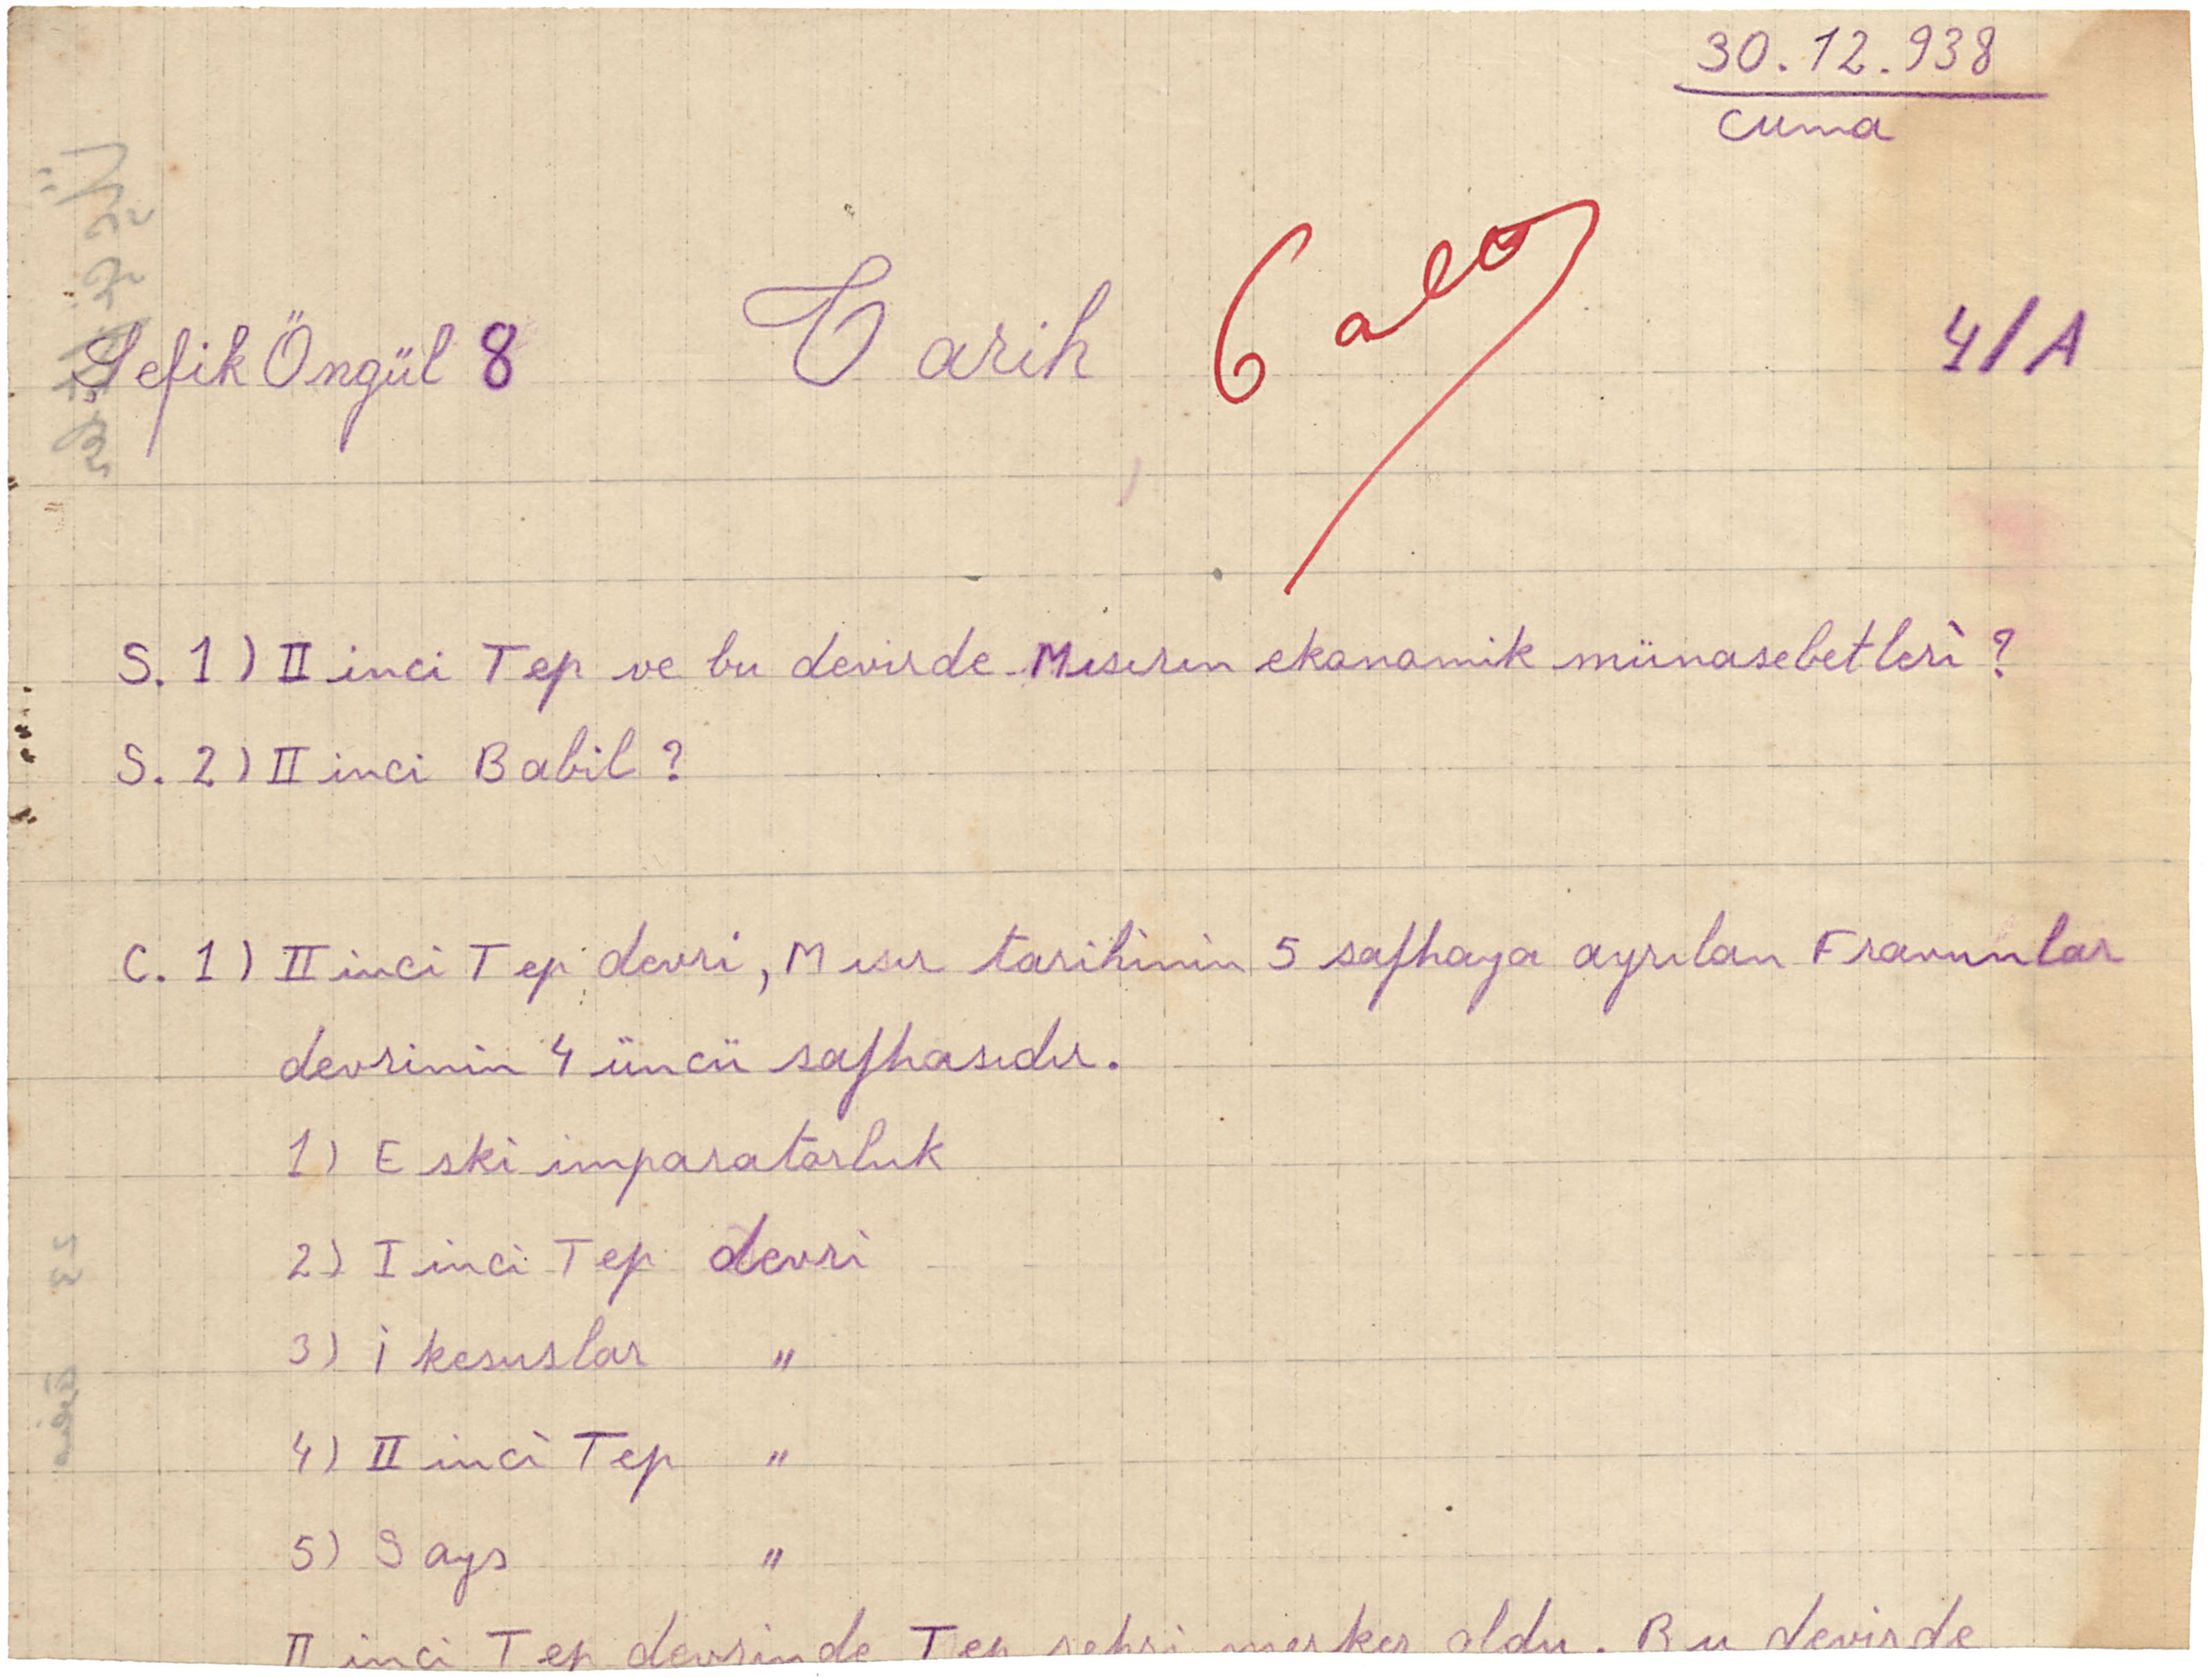 30.12.938
Cuma
Şefik Öngül 8 Tarih 6 altı 4/A
S. 1) II inci Tep ve bu devirde Mısırın ekanamik münasebetleri?
S. 2) II inci Babil?
C. 1) II inci Tep devri, Mısır tarihinin 5 safhaya ayrılan Fravunlar
devrinin 4 üncü safhasıdır.
1) Eski imparatorluk
2) I inci Tep devri
3) İkesuslar "
4) II inci Tep "
5) Says "
II inci Tep devrinde Tep şehri merkez oldu. Bu devirde